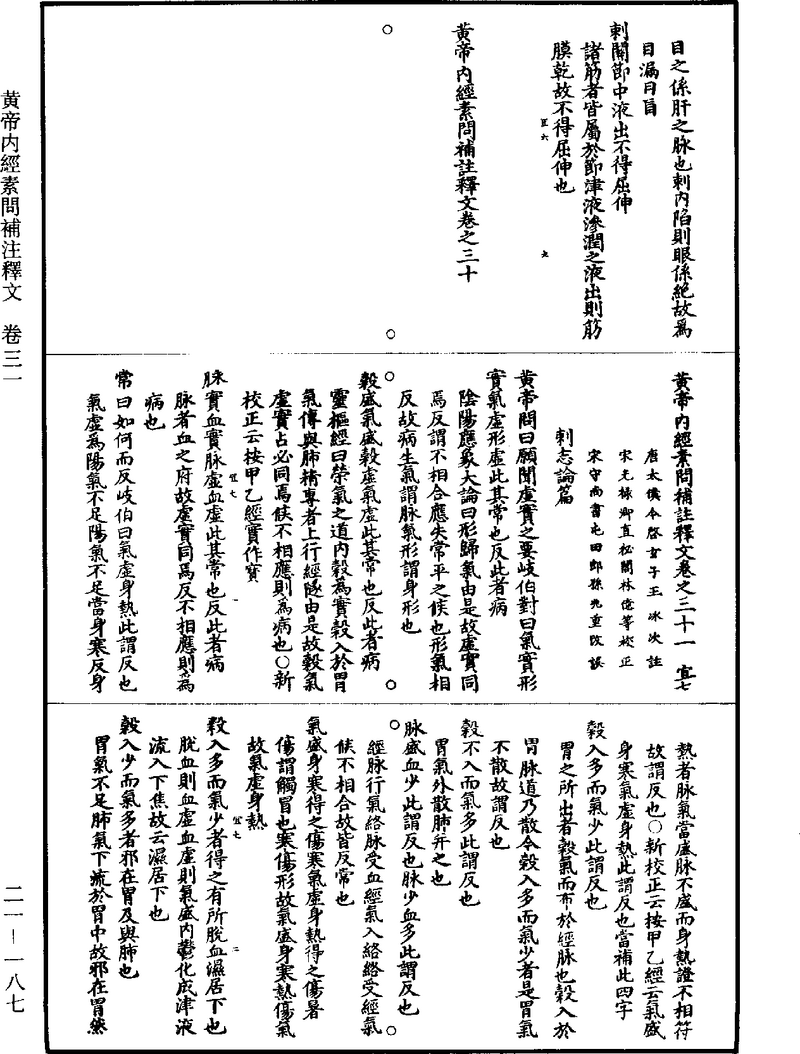 黃帝內經素問補注釋文 卷三一
二一—一八七
目之係肝之脉也刺內陷則眼係絕故爲
目漏目盲
刺關節中液出不得屈伸
諸筋者皆屬於節津液滲潤之液出則筋
膜乾故不得屈伸也
宜六 九
黃帝內經素問補註釋文卷之三十
黃帝內經素問補註釋文卷之三十一 宜七
唐太僕令啓玄子王冰次註
宋光祿卿直祕閣林億等校正
宋守尚書屯田郎孫兆重改誤
刺志論篇
黃帝問曰願聞虛實之要岐伯對曰氣實形
實氣虛形虛此其常也反此者病
陰陽應象大論曰形歸氣由是故虛實同
焉反謂不相合應失常平之候也形氣相
反故病生氣謂脉氣形謂身形也
穀盛氣盛穀虛氣虛此其常也反此者病
靈樞經曰榮氣之道內穀爲實穀入於胃
氣傳與肺精專者上行經隧由是故穀氣
虛實占必同焉候不相應則爲病也○新
校正云按甲乙經實作寶
脉實血實脉虛血虛此其常也反此者病
宜七 一
脉者血之府故虛實同焉反不相應則爲
病也
帝曰如何而反岐伯曰氣虛身熱此謂反也
氣虛爲陽氣不足陽氣不足當身寒反身
熱者脉氣當盛脉不盛而身熱證不相符
故謂反也○新校正云按甲乙經云氣盛
身寒氣虛身熱此謂反也當補此四字
穀入多而氣少此謂反也
胃之所出者穀氣而布於經脉也穀入於
胃脉道乃散今穀入多而氣少者是胃氣
不散故謂反也
穀不入而氣多此謂反也
胃氣外散肺并之也
脉盛血少此謂反也脉少血多此謂反也
經脉行氣絡脉受血經氣入絡絡受經氣
候不相合故皆反常也
氣盛身寒得之傷寒氣虛身熱得之傷暑
傷謂觸冒也寒傷形故氣盛身寒熱傷氣
故氣虛身熱
宜七 二
穀入多而氣少者得之有所脫血濕居下也
脫血則血虛血虛則氣盛內鬱化成津液
流入下焦故云濕居下也
穀入少而氣多者邪在胃及與肺也
胃氣不足肺氣下流於胃中故邪在胃然